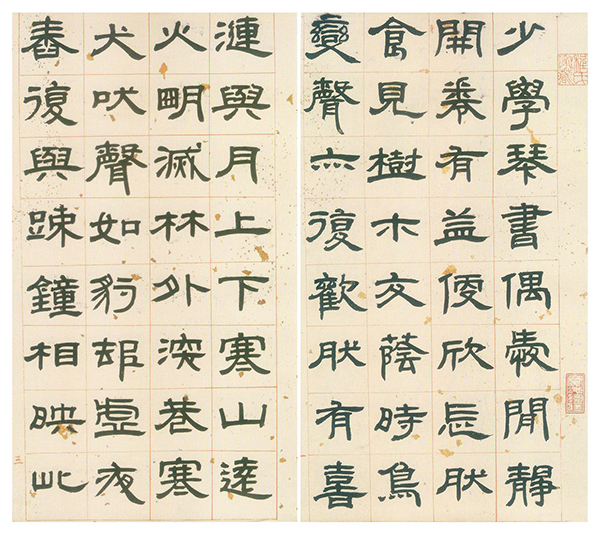 少學琴書偶愛閒靜
開卷有益便欣忘肰
食見樹木交蔭時鳥
變聲亦復歡肰有喜
漣與月上下寒山遠
火朙滅林外深巷寒
犬吠聲如豹邨虛夜
舂復與踈鐘相映此